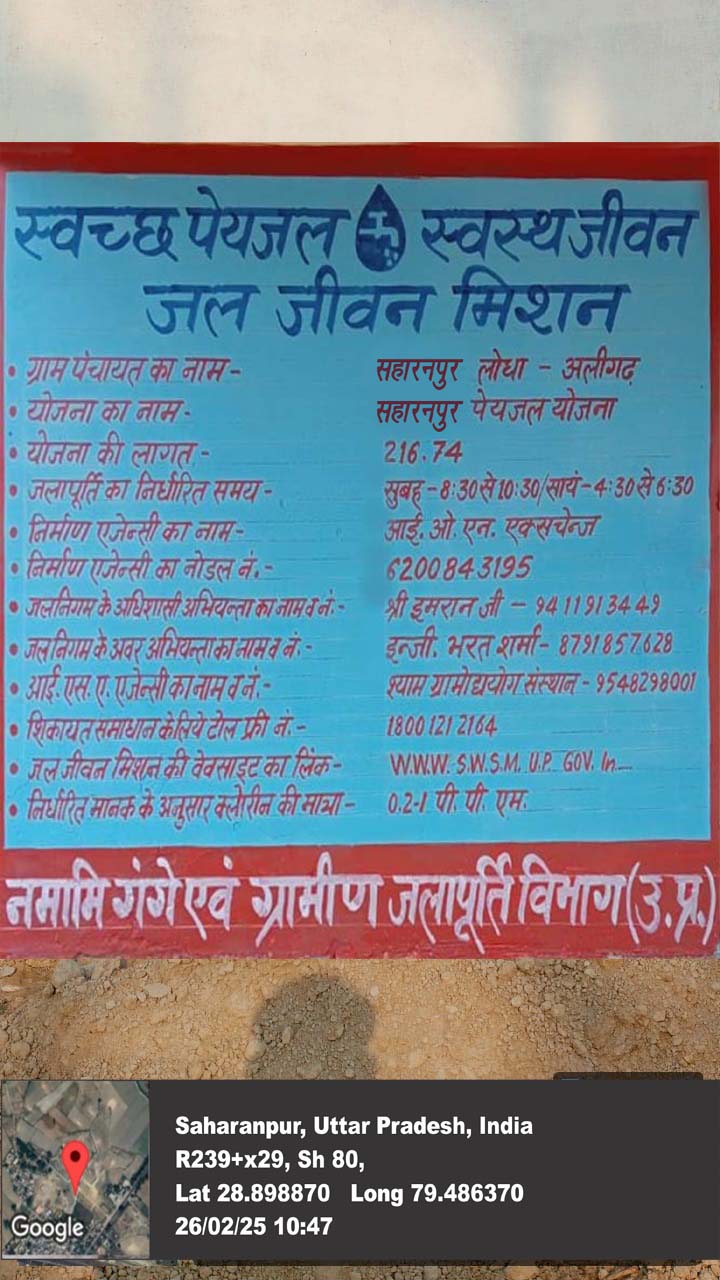 स्वच्छ पेयजल स्वस्थ जीवन
जल जीवन मिशन
• ग्राम पंचायत का नाम - सहारनपुर लोधा - अलीगढ़
• योजना का नाम - सहारनपुर पेयजल योजना
• योजना की लागत - 216.74
• जलापूर्ति का निर्धारित समय - सुबह - 8:30 से 10:30/सायं - 4:30 से 6:30
• निर्माण एजेन्सी का नाम - आई. ओ. एन. एक्सचेन्ज
• निर्माण एजेन्सी का नोडल नं. - 6200843195
• जलनिगम के अधिशासी अभियन्ता का नाम व नं. - श्री इमरान जी - 9411913449
• जलनिगम के अवर अभियन्ता का नाम व नं. - इन्जी. भरत शर्मा - 8791857628
• आई. एस. ए. एजेन्सी का नाम व नं. - श्याम ग्रामोद्ययोग संस्थान - 9548298001
• शिकायत समाधान के लिये टोल फ्री नं. - 1800 121 2164
• जल जीवन मिशन की वेवसाइट का लिंक - W.W.W. S.W.S.M. U.P. GOV. In....
• निर्धारित मानक के अनुसार क्लोरीन की मात्रा - 0.2-1 पी. पी. एम.
नमामि गंगे एवं ग्रामीण जलापूर्ति विभाग (उ.प्र.)
Saharanpur, Uttar Pradesh, India
R239+x29, Sh 80,
Lat 28.898870 Long 79.486370
26/02/25 10:47
Google